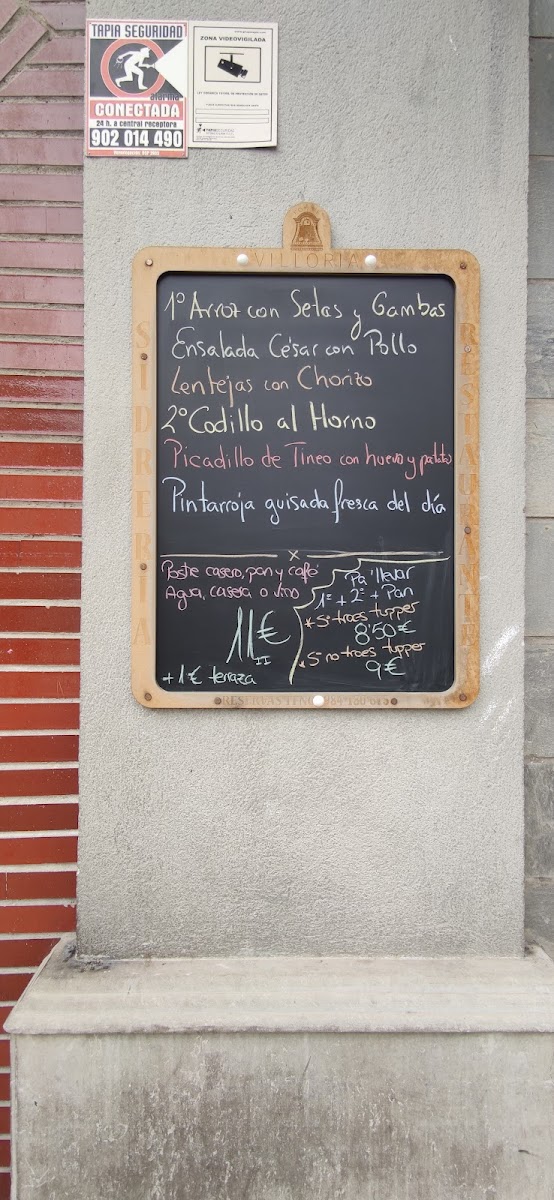 TAPIA SEGURIDAD
alarma
CONECTADA
24 h. a central receptora
902 014 490
ZONA VIDEOVIGILADA
VILLORIA
SIDRERÍA
RESTAURANTE
1º Arroz con Setas y Gambas
Ensalada César con Pollo
Lentejas con Chorizo
2º Codillo al Horno
Picadillo de Tineo con huevo y patatas
Pintarroja guisada fresca del día
x
Postre casero, pan y café
Agua, casera o vino
11€
+1€ terraza
Pa'llevar
1º + 2º + Pan
* Si traes tupper
8'50€
* Si no traes tupper
9€
RESERVAS TFNO